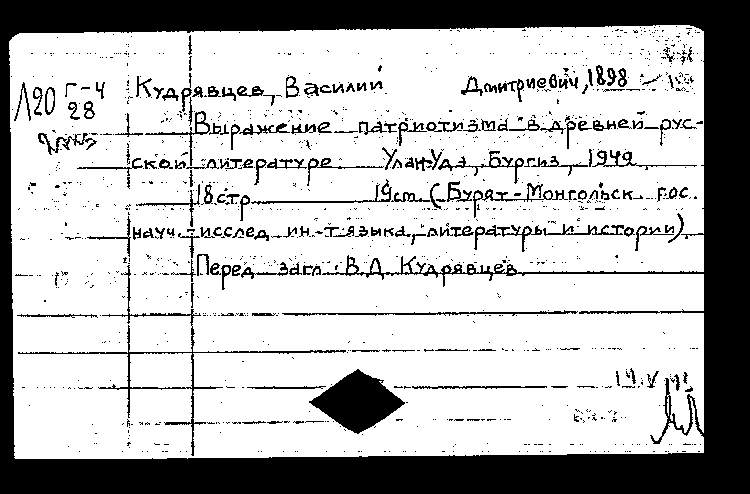 Л20 Г-4
28
Кудрявцев, Василий Дмитриевич, 1898
Выражение патриотизма в древней рус-
ской литературе. Улан-Удэ, Бургиз, 1949.
18 стр. 19 см. (Бурят-Монгольск. гос.
науч.-исслед. ин-т языка, литературы и истории).
Перед загл.: В.Д. Кудрявцев.